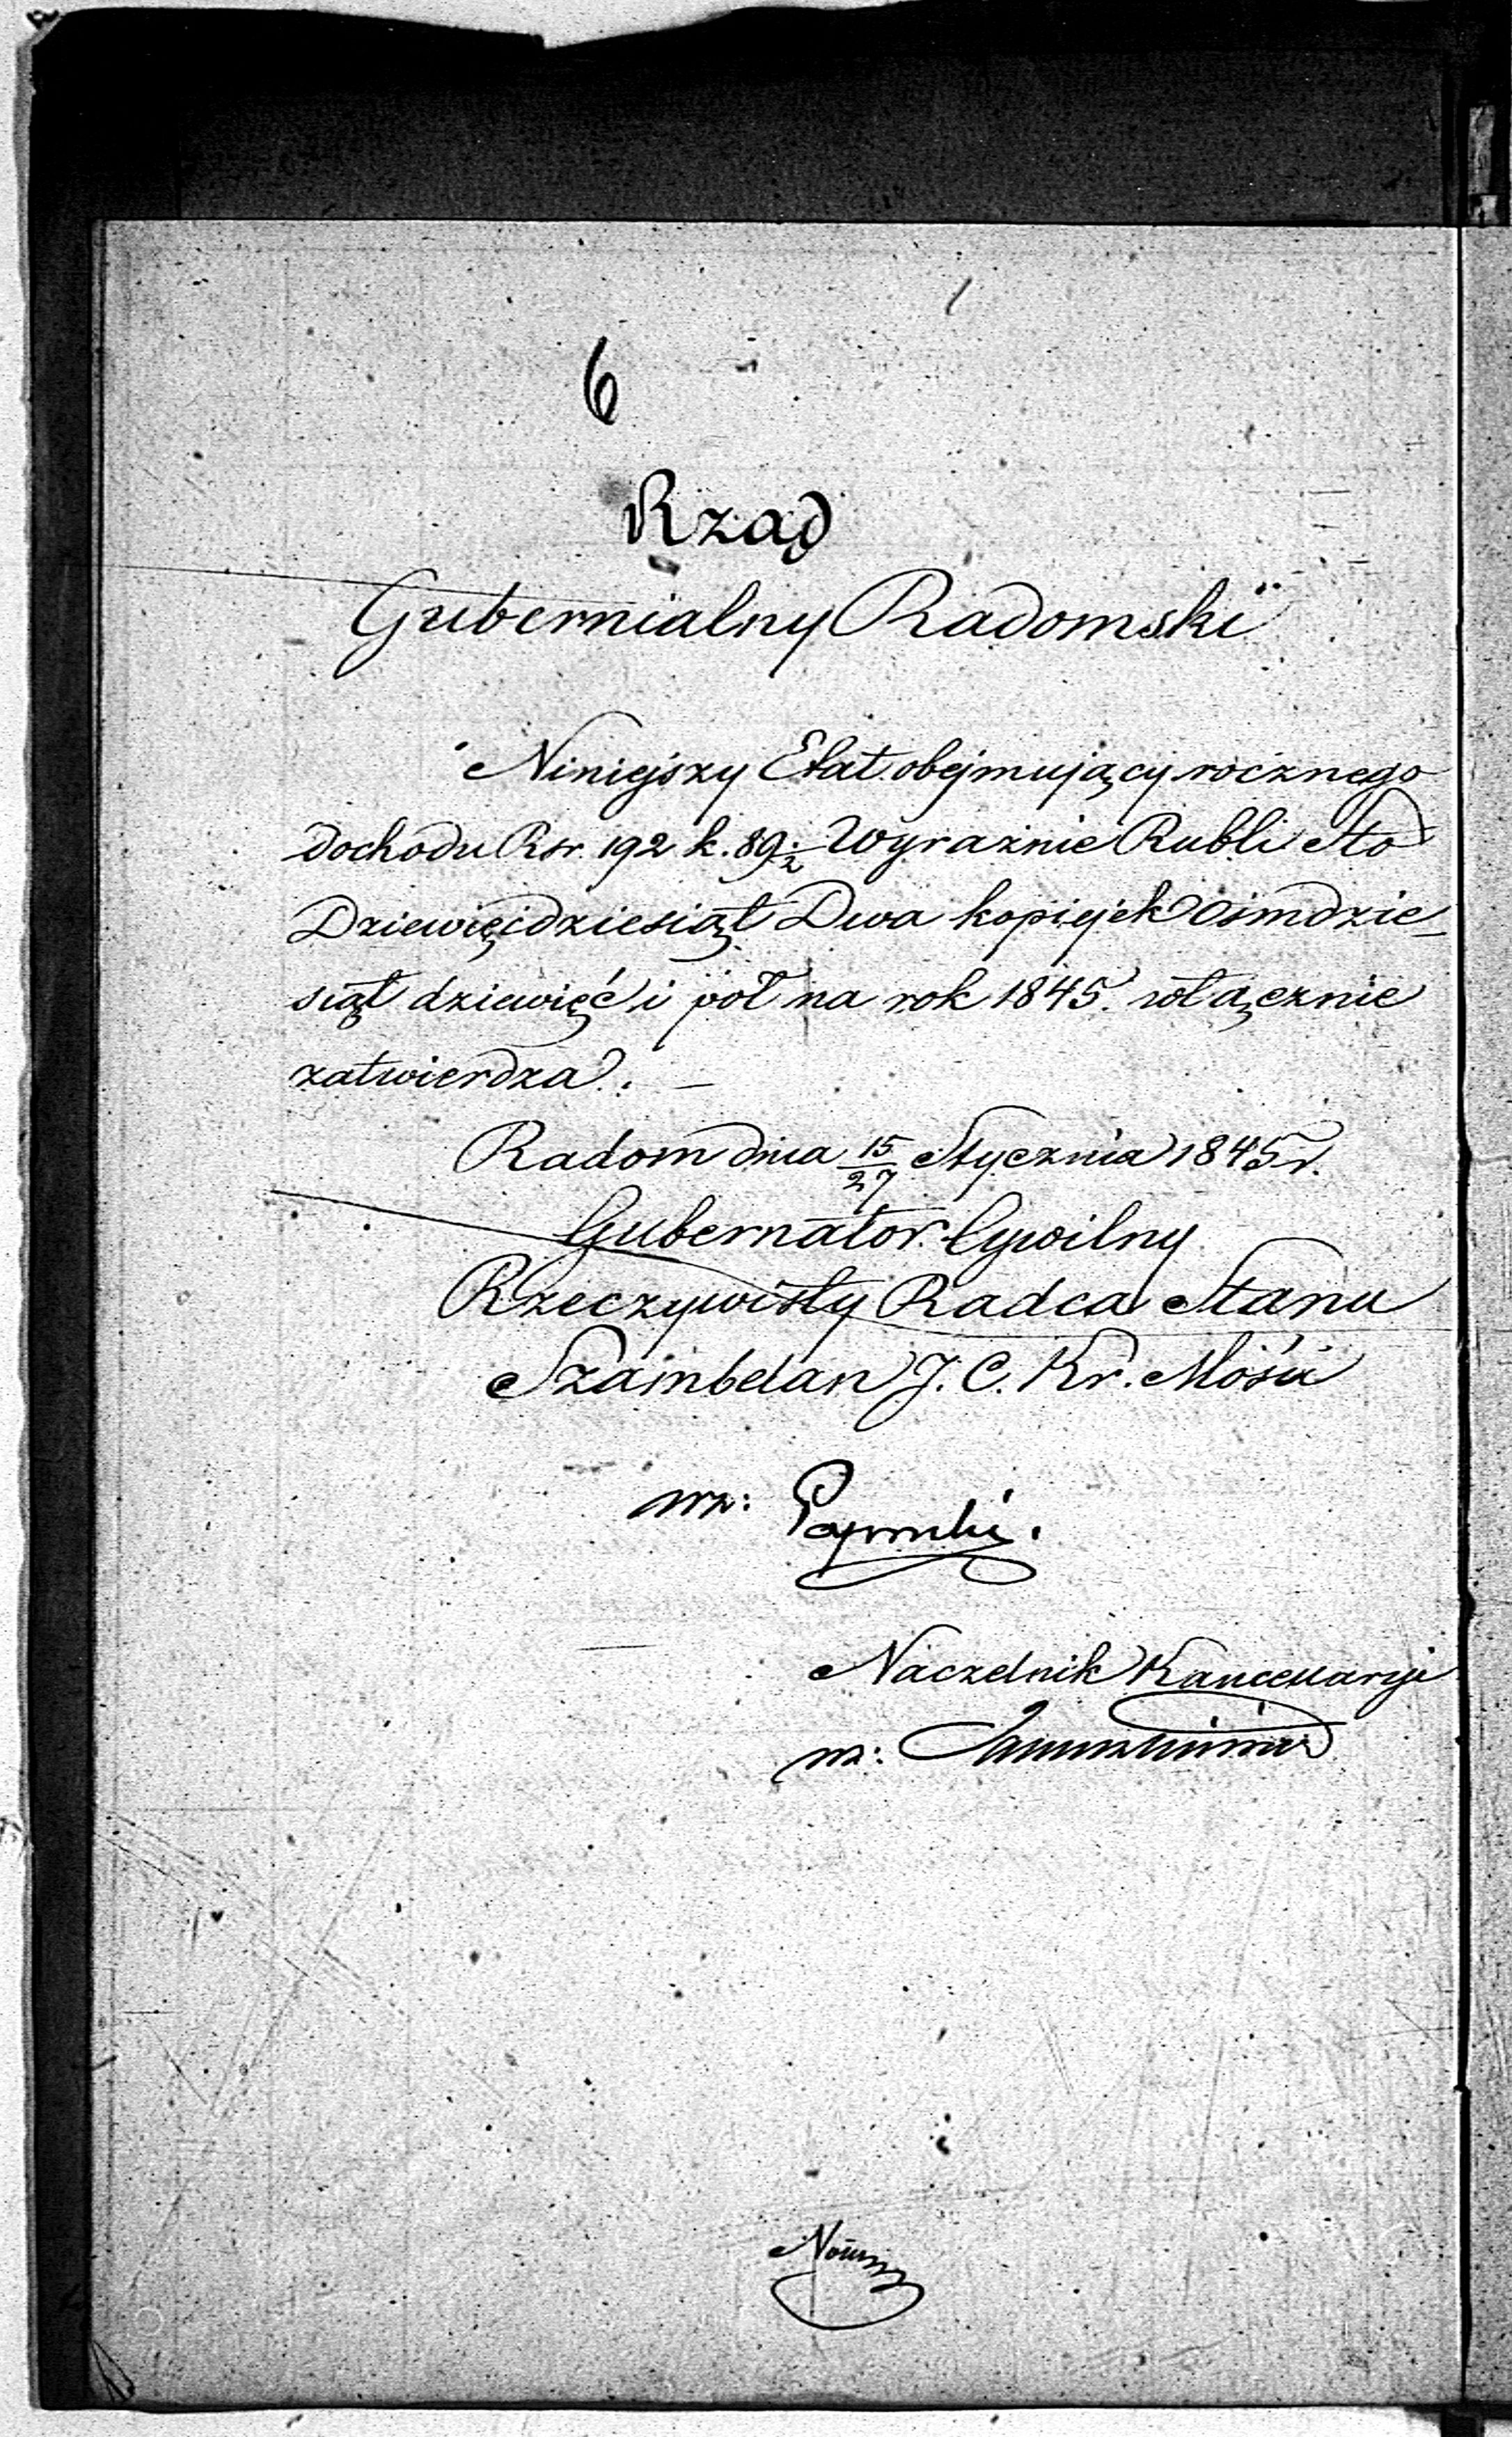 6
Rząd
Gubernialny Radomski
Niniejszy Etat obejmujący rocznego
dochodu Rsr. 192 k. 89½ Wyraźnie Rubli Sto
Dziewięćdziesiąt Dwa kopiejek Ośmdzie_
siąt dziewięć i pół na rok 1845. włącznie
zatwierdza. —
Radom dnia 15/27 Stycznia 1845 r.
Gubernator Cywilny
Rzeczywisty Radca Stanu
Szambelan J. C. Kr. Mości
wz:
Naczelnik Kancellaryi
wz: